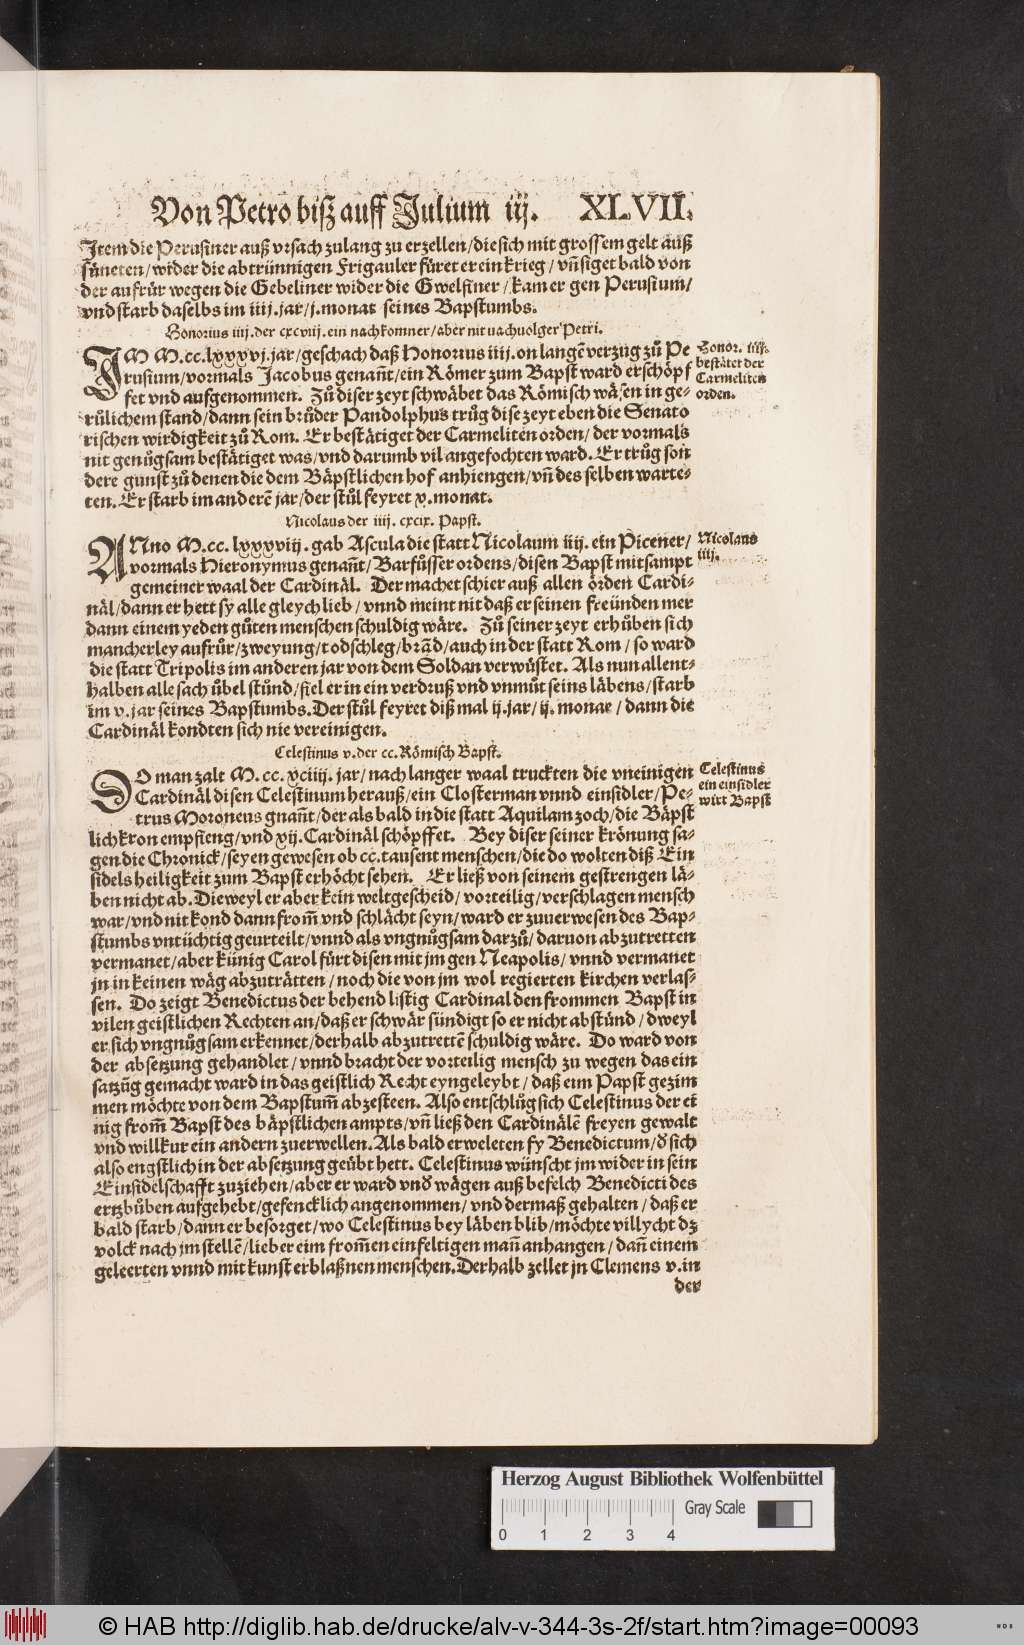 Von Petro biß auff Julium iij. XLVII.
Item die Perusiner auß vrsach zulang zu erzellen/die sich mit grossem gelt auß
süneten/wider die abtrünnigen Frigauler füret er ein krieg/vñ siget bald von
der aufrůr wegen die Gebeliner wider die Gwelfiner/kam er gen Perusium/
vnd starb daselbs im iiij.jar/j.monat seines Bapstumbs.
Honorius iiij.der cxcviij.ein nachkomner/aber nit nachuolger Petri.
IM M.cc.lxxxvj.jar/geschach daß Honorius iiij.on langẽ verzug zů Pe
rusium/vormals Jacobus genañt/ein Römer zum Bapst ward erschöpf
fet vnd aufgenommen. Zů diser zeyt schwäbet das Römisch wäsen in ge-
rülichem stand/dann sein brůder Pandolphus trůg dise zeyt eben die Senato
rischen wirdigkeit zů Rom. Er bestätiget der Carmeliten orden/der vormals
nit genůgsam bestätiget was/vnd darumb vil angefochten ward. Er trůg son
dere gunst zů denen die dem Bäpstlichen hof anhiengen/vñ des selben warte-
ten. Er starb im anderẽ jar/der stůl feyret x.monat.
Honor. iiij.
bestätet der
Carmeliten
orden.
Nicolaus der iiij. cxcix. Papst.
ANno M.cc.lxxxviij.gab Ascula die statt Nicolaum iiij.ein Picener/
vormals Hieronymus genañt/Barfůsser ordens/disen Bapst mitsampt
gemeiner waal der Cardinäl. Der machet schier auß allen örden Cardi-
näl/dann er hett sy alle gleych lieb/vnnd meint nit daß er seinen freünden mer
dann einem yeden gůten menschen schuldig wäre. Zů seiner zeyt erhůben sich
mancherley aufrůr/zweyung/todschleg/brãd/auch in der statt Rom/so ward
die statt Tripolis im anderen jar von dem Soldan verwůstet. Als nun allent-
halben alle sach übel stünd/fiel er in ein verdruß vnd vnmůt seins läbens/starb
im v.jar seines Bapstumbs.Der stůl feyret diß mal ij.jar/ij.monat/dann die
Cardinäl kondten sich nie vereinigen.
Nicolaus
iiij.
Celestinus v.der cc.Römisch Bapst.
DO man zalt M.cc.xciiij.jar/nach langer waal truckten die vneinigen
Cardinäl disen Celestinum herauß/ein Closterman vnnd einsidler/Pe-
trus Moroneus gnañt/der als bald in die statt Aquilam zoch/die Bäpst
lich kron empfieng/vnd xij.Cardinäl schöpffet. Bey diser seiner krönung sa-
gen die Chronick/seyen gewesen ob cc.tausent menschen/die do wolten diß Ein
sidels heiligkeit zum Bapst erhöcht sehen. Er ließ von seinem gestrengen lä-
ben nicht ab. Dieweyl er aber kein weltgescheid/vorteilig/verschlagen mensch
war/vnd nit kond dann from̃ vnd schlächt seyn/ward er zuuerwesen des Bap-
stumbs vntüchtig geurteilt/vnnd als vngnůgsam darzů/daruon abzutretten
vermanet/aber künig Carol fürt disen mit jm gen Neapolis/vnnd vermanet
jn in keinen wäg abzuträtten/noch die von jm wol regierten kirchen verlas-
sen. Do zeigt Benedictus der behend listig Cardinal den frommen Bapst in
vilen geistlichen Rechten an/daß er schwär sündigt so er nicht abstünd/dweyl
er sich vngnůgsam erkennet/derhalb abzutrettẽ schuldig wäre. Do ward von
der absetzung gehandlet/vnnd bracht der vorteilig mensch zu wegen das ein
satzūg gemacht ward in das geistlich Recht eyngeleybt/daß eim Papst gezim
men möchte von dem Bapstum̃ abzesteen. Also entschlůg sich Celestinus der ei
nig from̃ Bapst des bäpstlichen ampts/vñ ließ den Cardinälẽ freyen gewalt
vnd willkur ein andern zuerwellen. Als bald erweleten sy Benedictum/ď sich
also engstlich in der absetzung geübt hett. Celestinus wünscht jm wider in sein
Einsidelschafft zuziehen/aber er ward vnď wägen auß befelch Benedicti des
ertzbůben aufgehebt/gefencklich angenommen/vnd dermaß gehalten/daß er
bald starb/dann er besorget/wo Celestinus bey läben blib/möchte villycht dz
volck nach jm stellẽ/lieber eim from̃en einfeltigen mañ anhangen/dañ einem
geleerten vnnd mit kunst erblaßnen menschen. Derhalb zellet jn Clemens v.in
der
Celestinus
ein einsidler
wirt Bapst
Herzog August Bibliothek Wolfenbüttel
Gray Scale
0 1 2 3 4
© HAB http://diglib.hab.de/drucke/alv-v-344-3s-2f/start.htm?image=00093